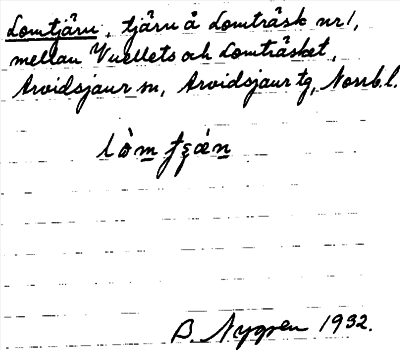 Lomtjärn, tjärn å Lomträsk nr 1,
mellan Vuellets och Lomträsket,
Arvidsjaur sn, Arvidsjaur tg, Norrb. l.
B. Nygren 1932.